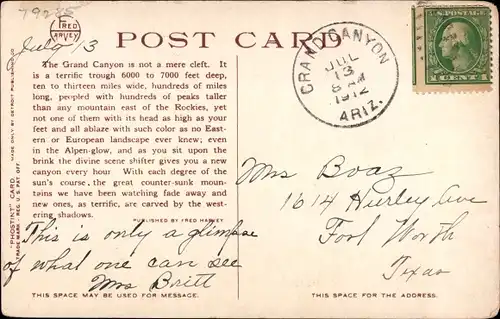 79285
FRED
HARVEY
July 13
POST CARD
GRAND CANYON
JUL
13
8 AM
1912
ARIZ.
U.S. POSTAGE
1 CENT 1
The Grand Canyon is not a mere cleft. It
is a terrific trough 6000 to 7000 feet deep,
ten to thirteen miles wide, hundreds of miles
long, peopled with hundreds of peaks taller
than any mountain east of the Rockies, yet
not one of them with its head as high as your
feet and all ablaze with such color as no East-
ern or European landscape ever knew; even
in the Alpen-glow, and as you sit upon the
brink the divine scene shifter gives you a new
canyon every hour With each degree of the
sun's course, the great counter-sunk moun-
tains we have been watching fade away and
new ones, as terrific, are carved by the west-
ering shadows.
PUBLISHED BY FRED HARVEY
"PHOSTINT" CARD
TRADE MARK - REG. U.S. PAT. OFF.
MADE ONLY BY DETROIT PUBLISHING CO.
This is only a glimpse
of what one can see
Mrs Britt
THIS SPACE MAY BE USED FOR MESSAGE.
Mrs Boaz
1614 Hurley Ave
Fort Worth
Texas
THIS SPACE IS FOR THE ADDRESS.